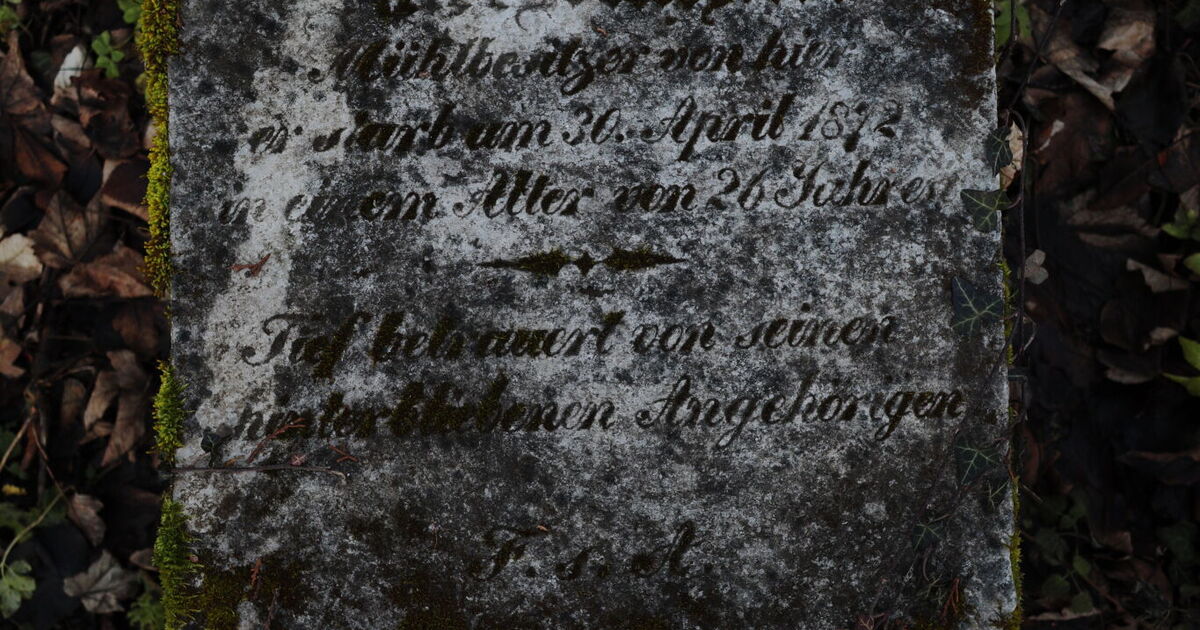 Mühlbesitzer von hier
er starb am 30. April 1872
in einem Alter von 26 Jahren
Tief betrauert von seinen
hinterbliebenen Angehörigen
F. s. A.